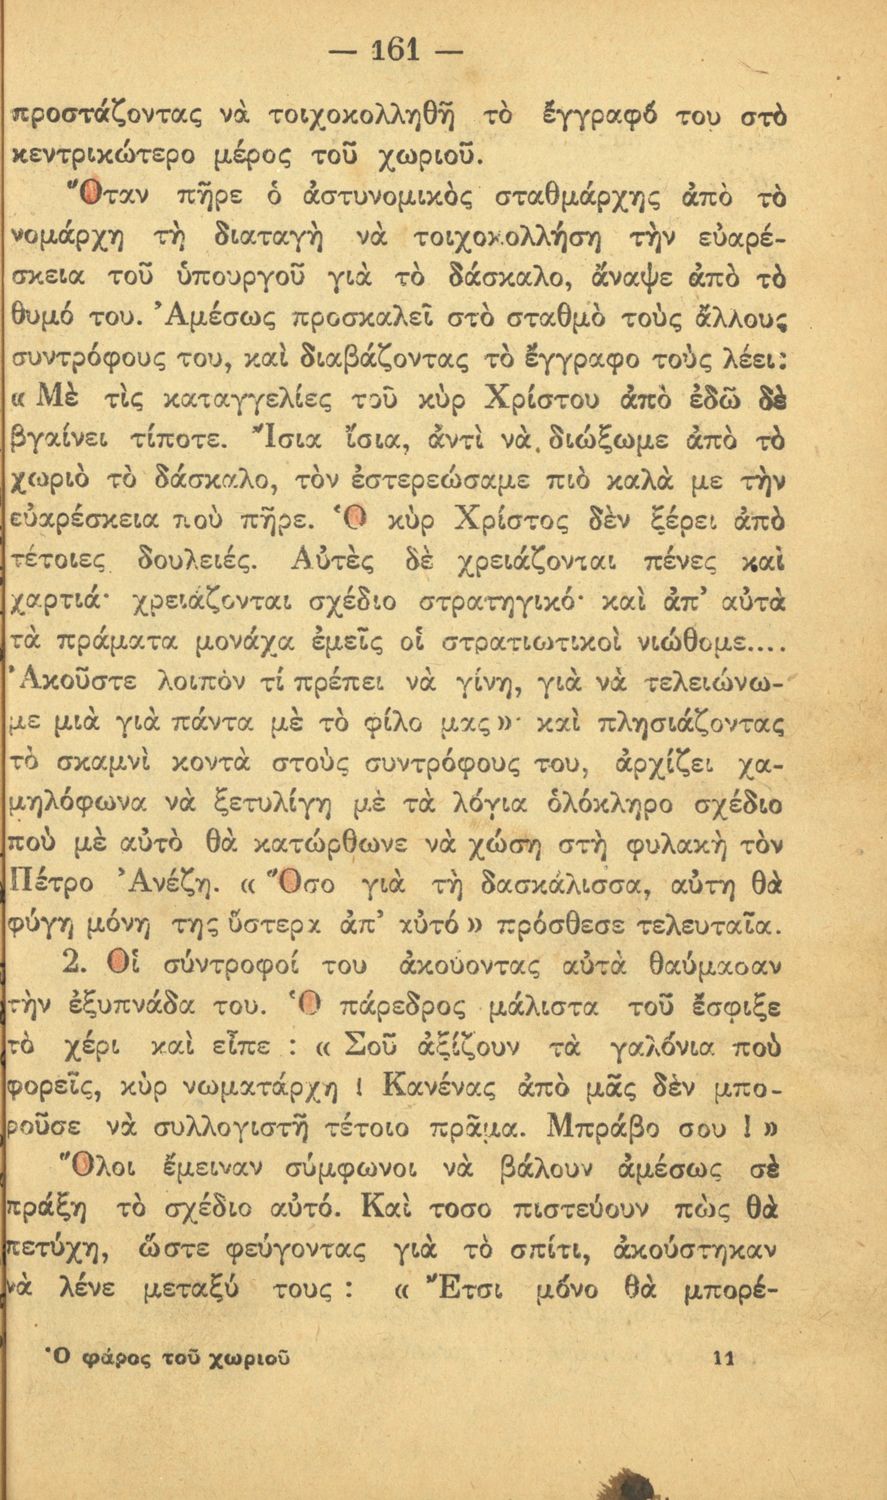 — 161 —
προστάζοντας νὰ τοιχοκολληθῆ τὸ ἔγγραφό του στὸ
κεντρικώτερο μέρος τοῦ χωριοῦ.
Ὅταν πῆρε ὁ ἀστυνομικὸς σταθμάρχης ἀπὸ τὸ
νομάρχη τὴ διαταγὴ νὰ τοιχοκολλήση τὴν εὐαρέ-
σκεια τοῦ ὑπουργοῦ γιὰ τὸ δάσκαλο, ἄναψε ἀπὸ τὸ
θυμό του. Ἀμέσως προσκαλεῖ στὸ σταθμὸ τοὺς ἄλλους
συντρόφους του, καὶ διαβάζοντας τὸ ἔγγραφο τοὺς λέει:
« Μὲ τὶς καταγγελίες τοῦ κὺρ Χρίστου ἀπὸ ἐδῶ δὲ
βγαίνει τίποτε. Ἴσια ἴσια, ἀντὶ νὰ. διώξωμε ἀπὸ τὸ
χωριὸ τὸ δάσκαλο, τὸν ἐστερεώσαμε πιὸ καλὰ με τὴν
εὐαρέσκεια ποὺ πῆρε. Ὁ κὺρ Χρίστος δὲν ξέρει ἀπὸ
τέτοιες δουλειές. Αὐτὲς δὲ χρειάζονται πένες καὶ
χαρτιά· χρειάζονται σχέδιο στρατηγικό· καὶ ἀπ’ αὐτὰ
τὰ πράματα μονάχα ἐμεῖς οἱ στρατιωτικοὶ νιώθομε....
Ἀκοῦστε λοιπὸν τί πρέπει νὰ γίνη, γιὰ νὰ τελειώνω-
με μιὰ γιὰ πάντα μὲ τὸ φίλο μας»· καὶ πλησιάζοντας
τὸ σκαμνὶ κοντὰ στοὺς συντρόφους του, ἀρχίζει χα-
μηλόφωνα νὰ ξετυλίγη μὲ τὰ λόγια ὁλόκληρο σχέδιο
ποὺ μὲ αὐτὸ θὰ κατώρθωνε νὰ χώση στὴ φυλακὴ τὸν
Πέτρο Ἀνέζη. « Ὅσο γιὰ τὴ δασκάλισσα, αὐτη θὰ
φύγη μόνη της ὕστερα ἀπ’ αὐτό» πρόσθεσε τελευταῖα.
2. Οἱ σύντροφοί του ἀκούοντας αὐτὰ θαύμασαν
τὴν ἐξυπνάδα του. Ὁ πάρεδρος μάλιστα τοῦ ἔσφιξε
τὸ χέρι καὶ εἶπε : « Σοῦ ἀξίζουν τὰ γαλόνια ποὺ
φορεῖς, κὺρ νωματάρχη ! Κανένας ἀπὸ μᾶς δὲν μπο-
ροῦσε νὰ συλλογιστῆ τέτοιο πρᾶμα. Μπράβο σου ! »
Ὅλοι ἔμειναν σύμφωνοι νὰ βάλουν ἀμέσως σὲ
πράξη τὸ σχέδιο αὐτό. Καὶ τοσο πιστεύουν πὼς θὰ
πετύχη, ὥστε φεύγοντας γιὰ τὸ σπίτι, ἀκούστηκαν
νὰ λένε μεταξύ τους : « Ἔτσι μόνο θὰ μπορέ-
Ὁ φάρος τοῦ χωριοῦ 11